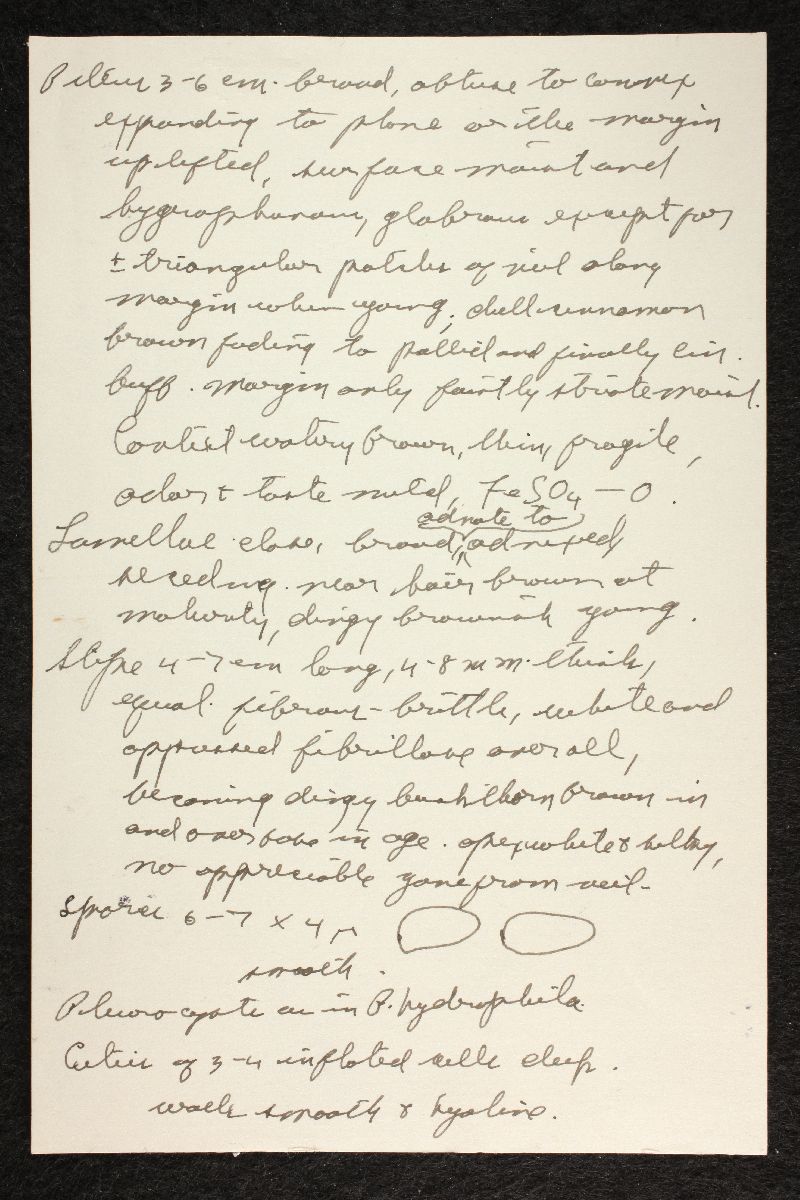 Pileus 3-6 cm. broad, obtuse to convex
expanding to plane or the margin
uplifted, surface moist and
hygrophanous, glabrous except for
± triangular patches of veil along
margin when young, dull cinnamon
brown fading to pallid and finally cin.
buff. Margin only faintly striate moist.
Context watery brown, thin, fragile,
odor & taste mild, FeSO4 – O.
adnate to
Lamellae close, broad, adnexed
seceding. near hair brown at
maturity, dingy brownish young.
Stipe 4-7 cm long, 4-8 mm. thick,
equal. fibrous-brittle, white and
appressed fibrillose over all,
becoming dingy buckthorn brown in
and over base in age. apex white & silky,
no appreciable zone from veil-
Spores 6-7 x 4 µ
smooth.
Pleurocysts as in P. hydrophila.
Cutis of 3-4 inflated cells deep.
walls smooth & hyaline.